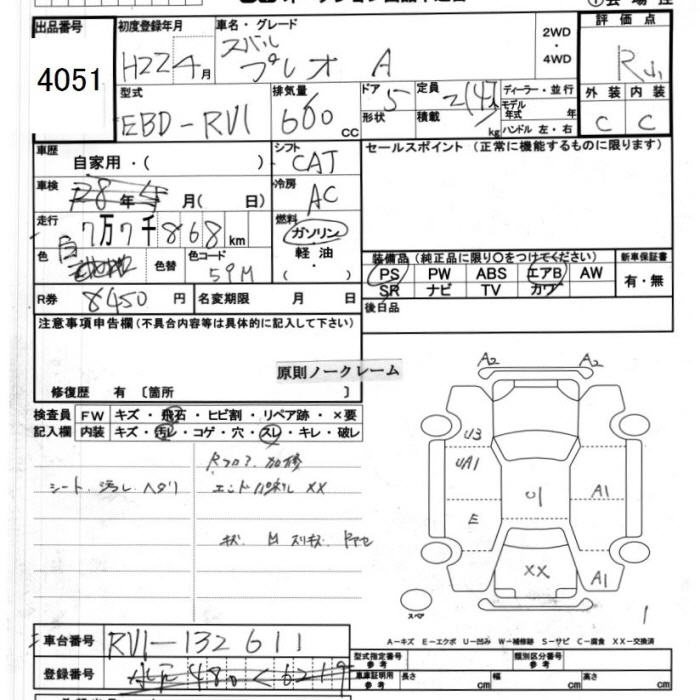 出品番号 初度登録年月 車名・グレード 2WD・4WD 評価点
4051 H22 4月 スバル プレオ A R
型式 排気量 ドア 定員 ディーラー・並行 外装 内装
EBD-RV1 660 cc 5 2(4)人 モデル年式 年 C C
形状 積載 kg ハンドル 左・右
車歴 シフト セールスポイント (正常に機能するものに限ります)
自家用・( ) CAT
車検 28年 月(日) 冷房 AC
走行 7万7千868km 燃料 ガソリン
色 白 色替 色コード 59M 軽油・( )
装備品 (純正品に限り○をつけてください) 新車保証書
PS PW ABS エアB AW 有・無
SR ナビ TV カワ
R券 8450円 名変期限 月 日 後日品
注意事項申告欄(不具合内容等は具体的に記入して下さい)
原則ノークレーム
修復歴 有 〔箇所 〕
検査員 FW キズ・飛石・ヒビ割・リペア跡・×要
記入欄 内装 キズ・汚レ・コゲ・穴・スレ・キレ・破レ
Rフロア 加修
シート 汚レ ヘタリ エンドパネル XX
A2 A2
U3
UA1 A1
E
XX A1
スペア
1
A-キズ E-エクボ U-凹み W-補修跡 S-サビ C-腐食 XX-交換済
車台番号 RV1-132611
型式指定番号 参考 類別区分番号 参考
登録番号
車庫証明用 参考 長さ cm 幅 cm 高さ cm